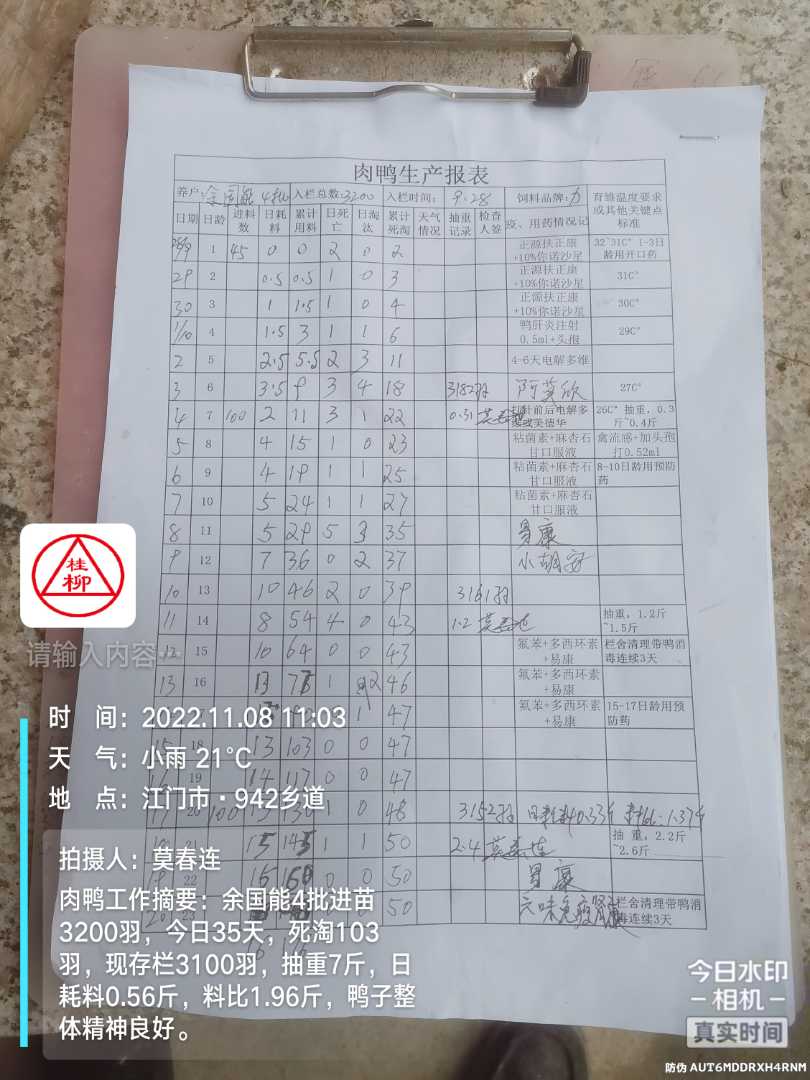 肉鸭生产报表
养户:余国能 4批 入栏总数:3200 入栏时间: 9.28 饲料品牌:力 育雏温度要求或其他关键点标准
日期 日龄 进料数 日耗料 累计用料 日死亡 日淘汰 累计死淘 天气情况 抽重记录 检查人签 疫、用药情况记
28/9 1 45 0 0 2 0 2 正源扶正康+10%你诺沙星 32~31C° 1-3日龄用开口药
29 2 0.5 0.5 1 0 3 正源扶正康+10%你诺沙星 31C°
30 3 1 1.5 1 0 4 正源扶正康+10%你诺沙星 30C°
1/10 4 1.5 3 1 1 6 鸭肝炎注射0.5ml+头孢 29C°
2 5 2.5 5.5 2 3 11 4-6天电解多维
3 6 3.5 9 3 4 18 3182羽 阿莫欣 27C°
4 7 100 2 11 3 1 22 0.31 莫春连 前后电解多 26C° 抽重,0.3斤~0.4斤
5 8 4 15 1 0 23 粘菌素+麻杏石甘口服液 禽流感+加头孢打0.52ml
6 9 4 19 1 1 25 粘菌素+麻杏石甘口服液 8-10日龄用预防药
7 10 5 24 1 1 27 粘菌素+麻杏石甘口服液
8 11 5 29 5 3 35 易康
9 12 7 36 0 2 37
10 13 10 46 2 0 39 3161羽
11 14 8 54 4 0 43 1.2 莫春连 抽重,1.2斤~1.5斤
12 15 10 64 0 0 43 氟苯+多西环素+易康 栏舍清理带鸭消毒连续3天
13 16 13 1 2 46 氟苯+多西环素+易康
1 47 氟苯+多西环素+易康 15-17日龄用预防药
15 18 13 103 0 0 47
16 19 14 117 0 0 47
17 20 100 13 130 1 0 48 3152羽
21 15 145 1 1 50 2.4 莫春连 抽重,2.2斤~2.6斤
22 0 0 50 易康
20 23 0 0 50 六味免疫 栏舍清理带鸭消毒连续3天
桂柳
请输入内容...
时 间:2022.11.08 11:03
天 气:小雨 21°C
地 点:江门市·942乡道
拍摄人:莫春连
肉鸭工作摘要:余国能4批进苗
3200羽,今日35天,死淘103
羽,现存栏3100羽,抽重7斤,日
耗料0.56斤,料比1.96斤,鸭子整
体精神良好。
今日水印
相机
真实时间
防伪 AUT6MDDRXH4RNM